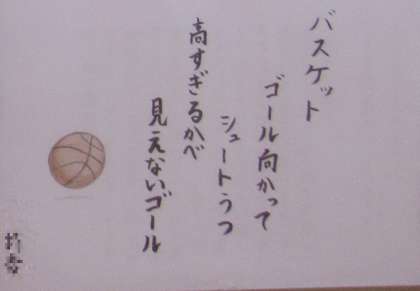 バスケット
ゴール向かって
シュートうつ
高すぎるかべ
見えないゴール